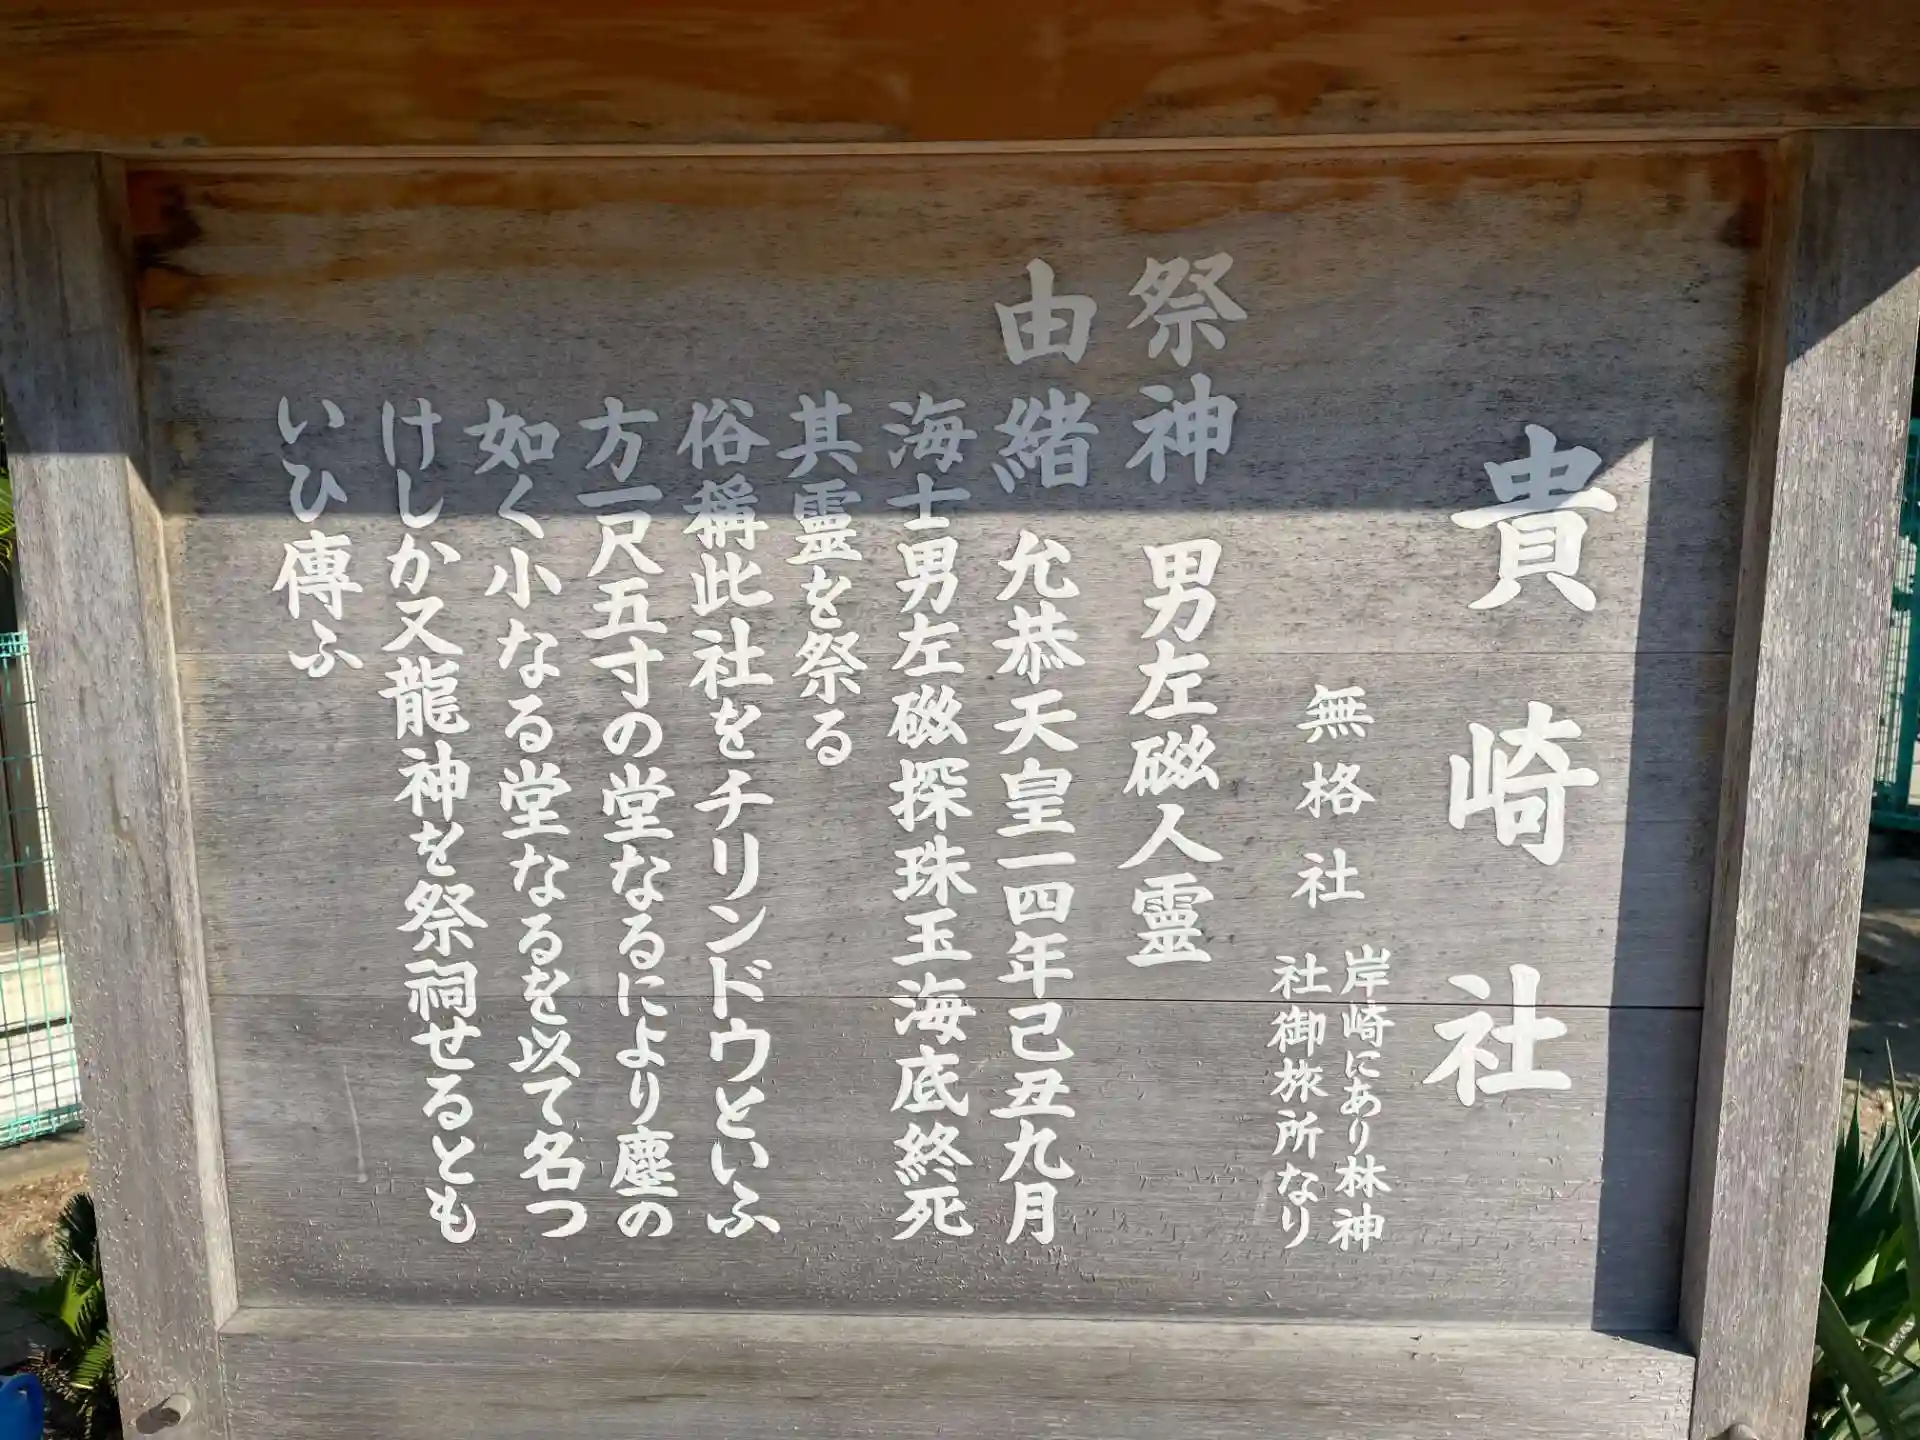 貴崎社
無格社
岸崎にあり林神
社御旅所なり
祭神　男左磁人霊
由緒　允恭天皇一四年己丑九月
海士男左磁探珠玉海底終死
其霊を祭る
俗稱此社をチリンドウといふ
方一尺五寸の堂なるにより塵の
如く小なる堂なるを以て名つ
けしか又龍神を祭祠せるとも
いひ傳ふ